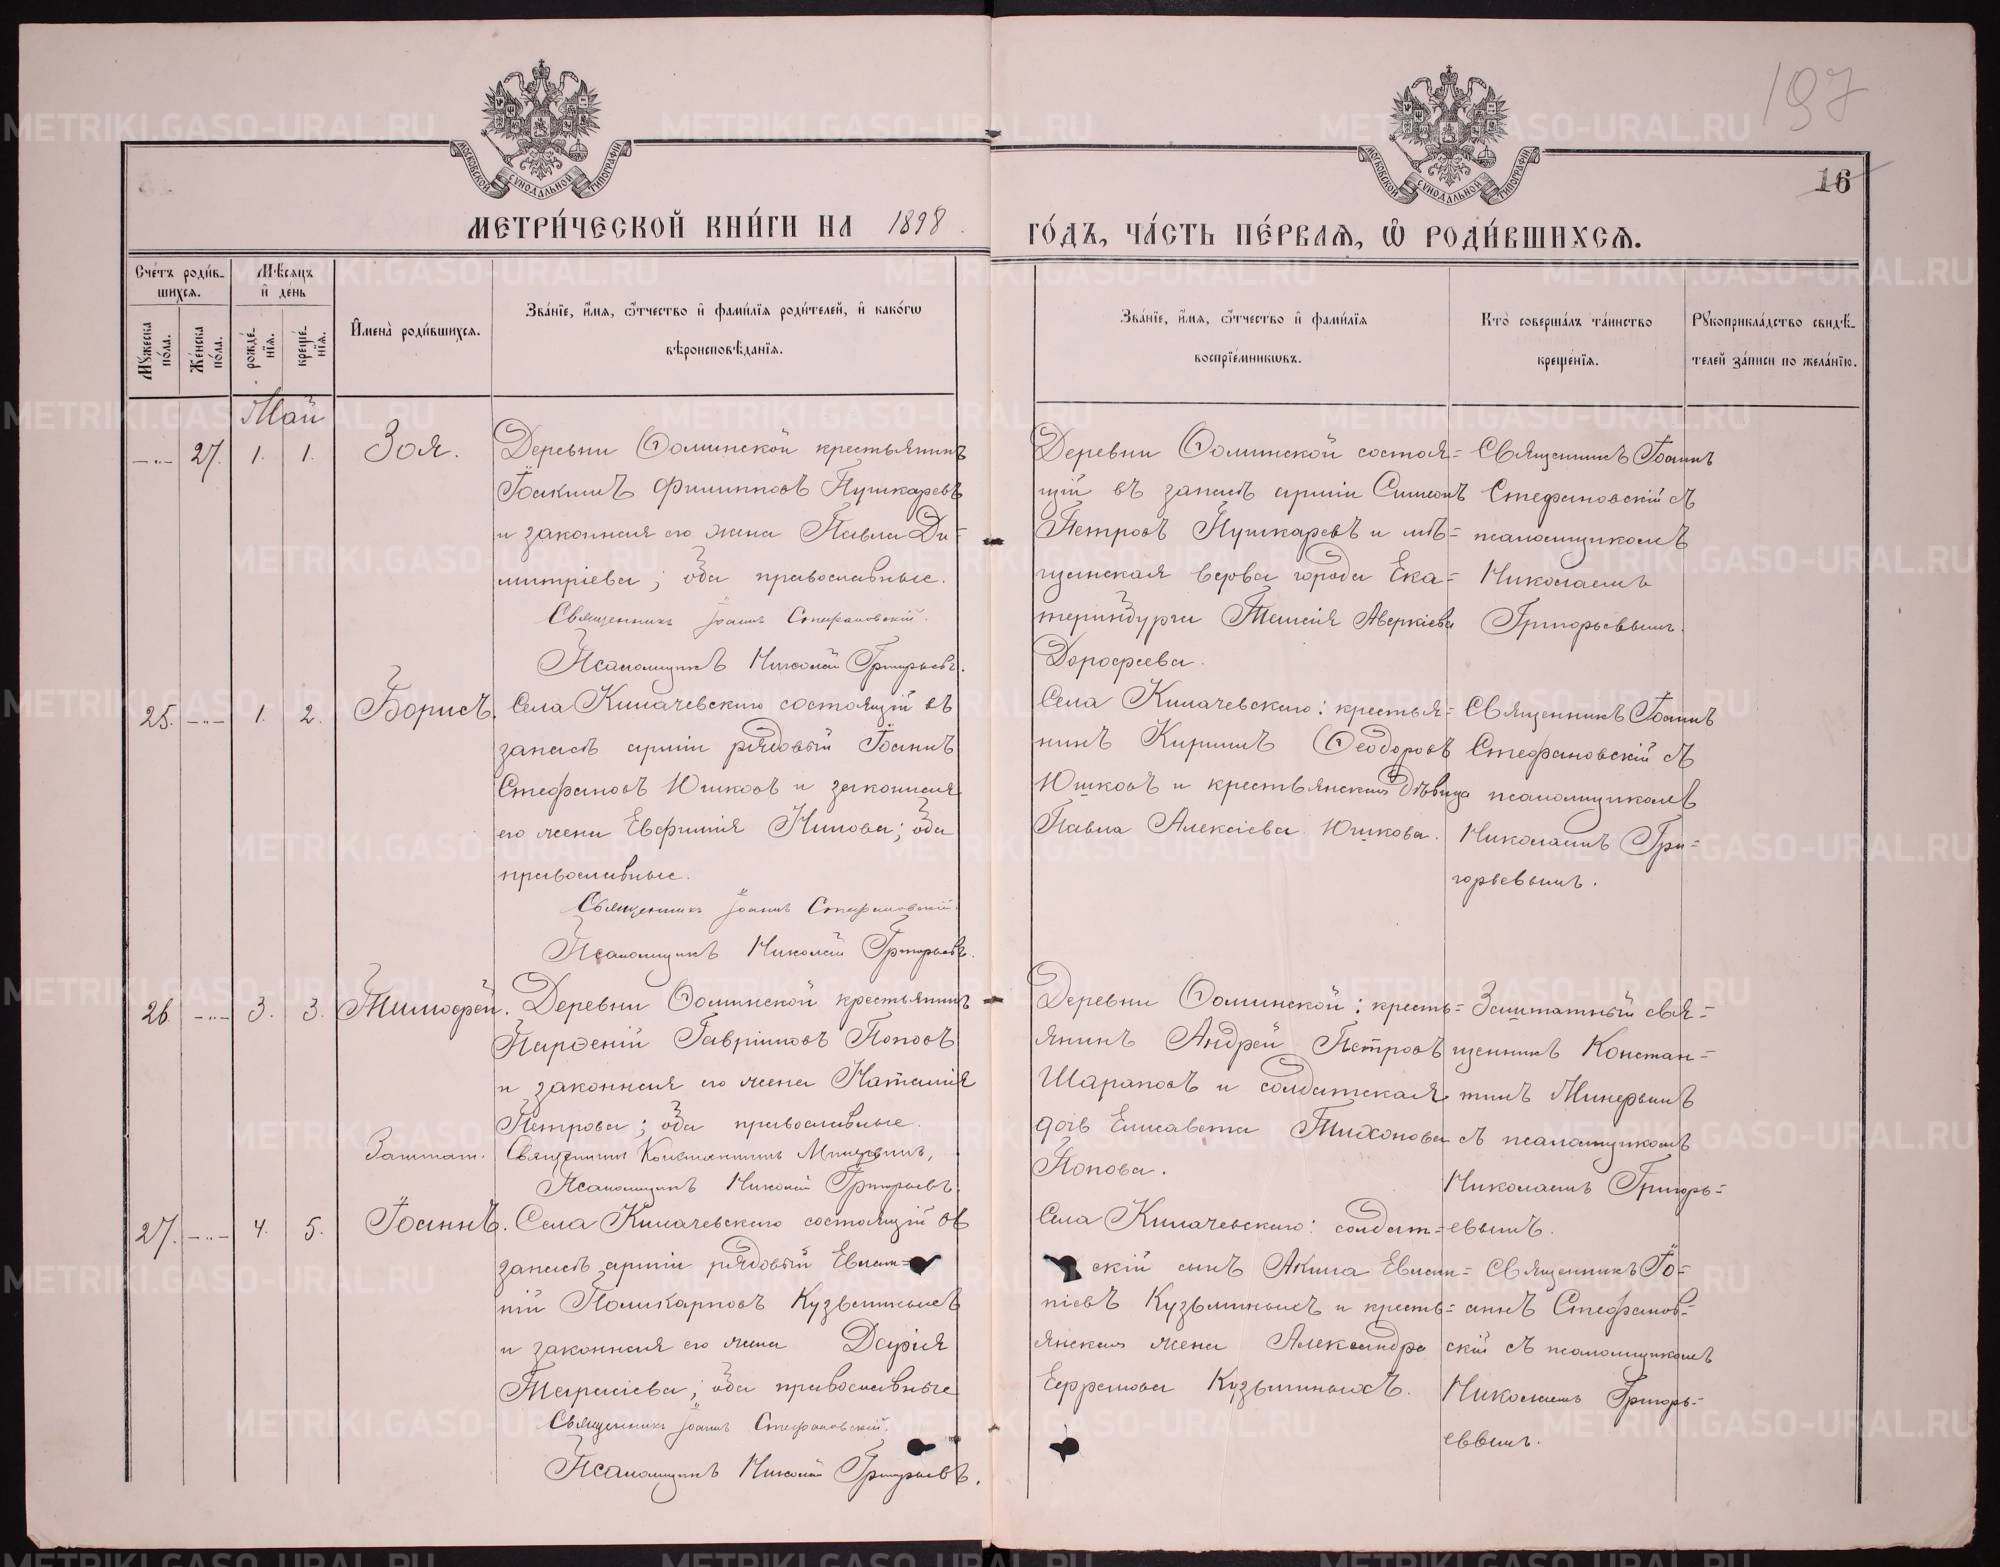 197
16
МОСКОВСКОЙ СУНОДАЛЬНОЙ ТИПОГРАФІИ
МОСКОВСКОЙ СУНОДАЛЬНОЙ ТИПОГРАФІИ
МЕТРИ́ЧЕСКОЙ КНИ́ГИ НА 1898
ГО́ДЪ, ЧА́СТЬ ПЕ́РВАЯ, Ѡ РОДИ́ВШИХСЯ.
Сче́тъ роди́в-
шихся.
Мѣ́сяцъ
и де́нь
Мꙋжеска по́ла.
Же́нска по́ла.
рожде́-нїя.
креще́-нїя.
Имена̀ роди́вшихся.
Зва́нїе, и́мя, ѻ҆́тчество и фами́лїя роди́телей, и како́гѡ
вѣроисповѣ́данїя.
Зва́нїе, и́мя, ѻ҆́тчество и фами́лїя
воспрїе́мникѡвъ.
Кто̀ соверша́лъ та́инство
креще́нїя.
Рꙋкоприкла́дство свидѣ́-
телей за́писи по жела́нїю.
Май
—"— 27. 1. 1. Зоя.
Деревни Ѳоминской крестьянинъ
Іоакимъ Филипповъ Пушкаревъ
и законная его жена Павла Ди-
митріева; оба православные.
Священникъ Іоаннъ Стефановскій.
Псаломщикъ Николай Григорьевъ.
Деревни Ѳоминской состоя=
щій въ запасѣ арміи Симеонъ
Петровъ Пушкаревъ и мѣ=
щанская вдова города Ека=
теринбурга Таисія Аверкіева
Дорофеева.
Священникъ Іоаннъ
Стефановскій съ
псаломщикомъ
Николаемъ
Григорьевымъ.
25. —"— 1. 2. Борисъ.
Села Кипачевскаго состоящій въ
запасѣ арміи рядовый Іоаннъ
Стефановъ Юшковъ и законная
его жена Евфимія Нилова; оба
православные.
Священникъ Іоаннъ Стефановскій.
Псаломщикъ Николай Григорьевъ.
Села Кипачевскаго: крестья=
нинъ Кириллъ Ѳеодоровъ
Юшковъ и крестьянская дѣвица
Павла Алексіева Юшкова.
Священникъ Іоаннъ
Стефановскій съ
псаломщикомъ
Николаемъ Гри=
горьевымъ.
26. —"— 3. 3. Тимофей.
Деревни Ѳоминской крестьянинъ
Парѳеній Гавріиловъ Поповъ
и законная его жена Наталія
Петрова; оба православные.
Заштат. Священникъ Константинъ Минервинъ,
Псаломщикъ Николай Григорьевъ.
Деревни Ѳоминской: кресть=
янинъ Андрей Петровъ
Шараповъ и солдатская
дочь Елисавета Тихонова
Попова.
Заштатный свя=
щенникъ Констан=
тинъ Минервинъ
съ псаломщикомъ
Николаемъ Григорь=
евымъ.
27. —"— 4. 5. Іоаннъ.
Села Кипачевскаго состоящій въ
запасѣ арміи рядовый Евлам=
пій Поликарповъ Кузьминыхъ
и законная его жена Дарія
Тарасіева; оба православные
Священникъ Іоаннъ Стефановскій.
Псаломщикъ Николай Григорьевъ.
Села Кипачевскаго: солдат=
скій сынъ Акила Евлам=
піевъ Кузьминыхъ и кресть=
янская жена Александра
Ефремова Кузьминыхъ.
Священникъ Іо=
аннъ Стефанов=
скій съ псаломщикомъ
Николаемъ Григорь=
евымъ.